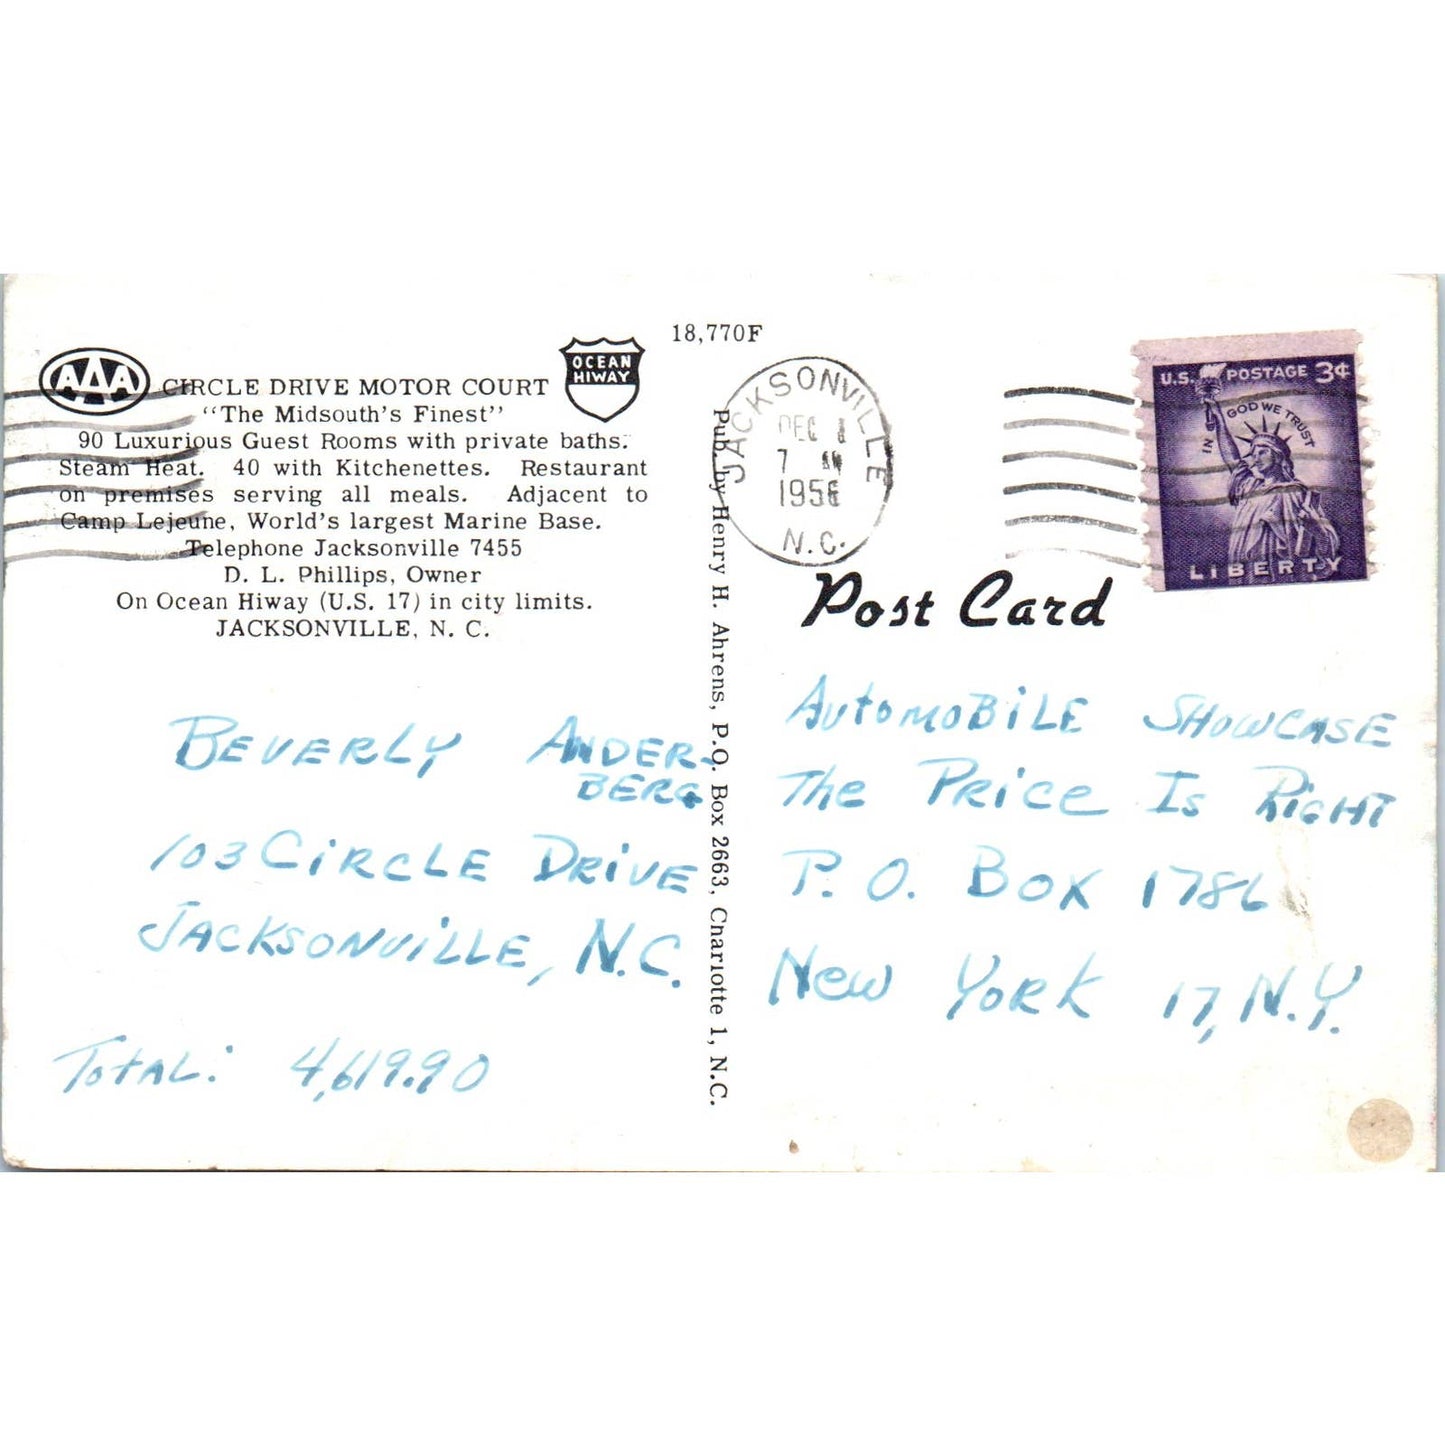 AAA
CIRCLE DRIVE MOTOR COURT
OCEAN
HIWAY
"The Midsouth's Finest"
90 Luxurious Guest Rooms with private baths.
Steam Heat. 40 with Kitchenettes. Restaurant
on premises serving all meals. Adjacent to
Camp Lejeune, World's largest Marine Base.
Telephone Jacksonville 7455
D. L. Phillips, Owner
On Ocean Hiway (U.S. 17) in city limits.
JACKSONVILLE, N. C.
BEVERLY ANDER-
BERG
103 CIRCLE DRIVE
JACKSONVILLE, N.C.
TOTAL: 4,619.90
18,770F
Pub. by Henry H. Ahrens, P.O. Box 2663, Charlotte 1, N.C.
JACKSONVILLE
DEC
7
1956
N.C.
U.S. POSTAGE 3¢
IN GOD WE TRUST
LIBERTY
Post Card
AUTOMOBILE SHOWCASE
THE PRICE IS RIGHT
P. O. BOX 1786
NEW YORK 17, N.Y.